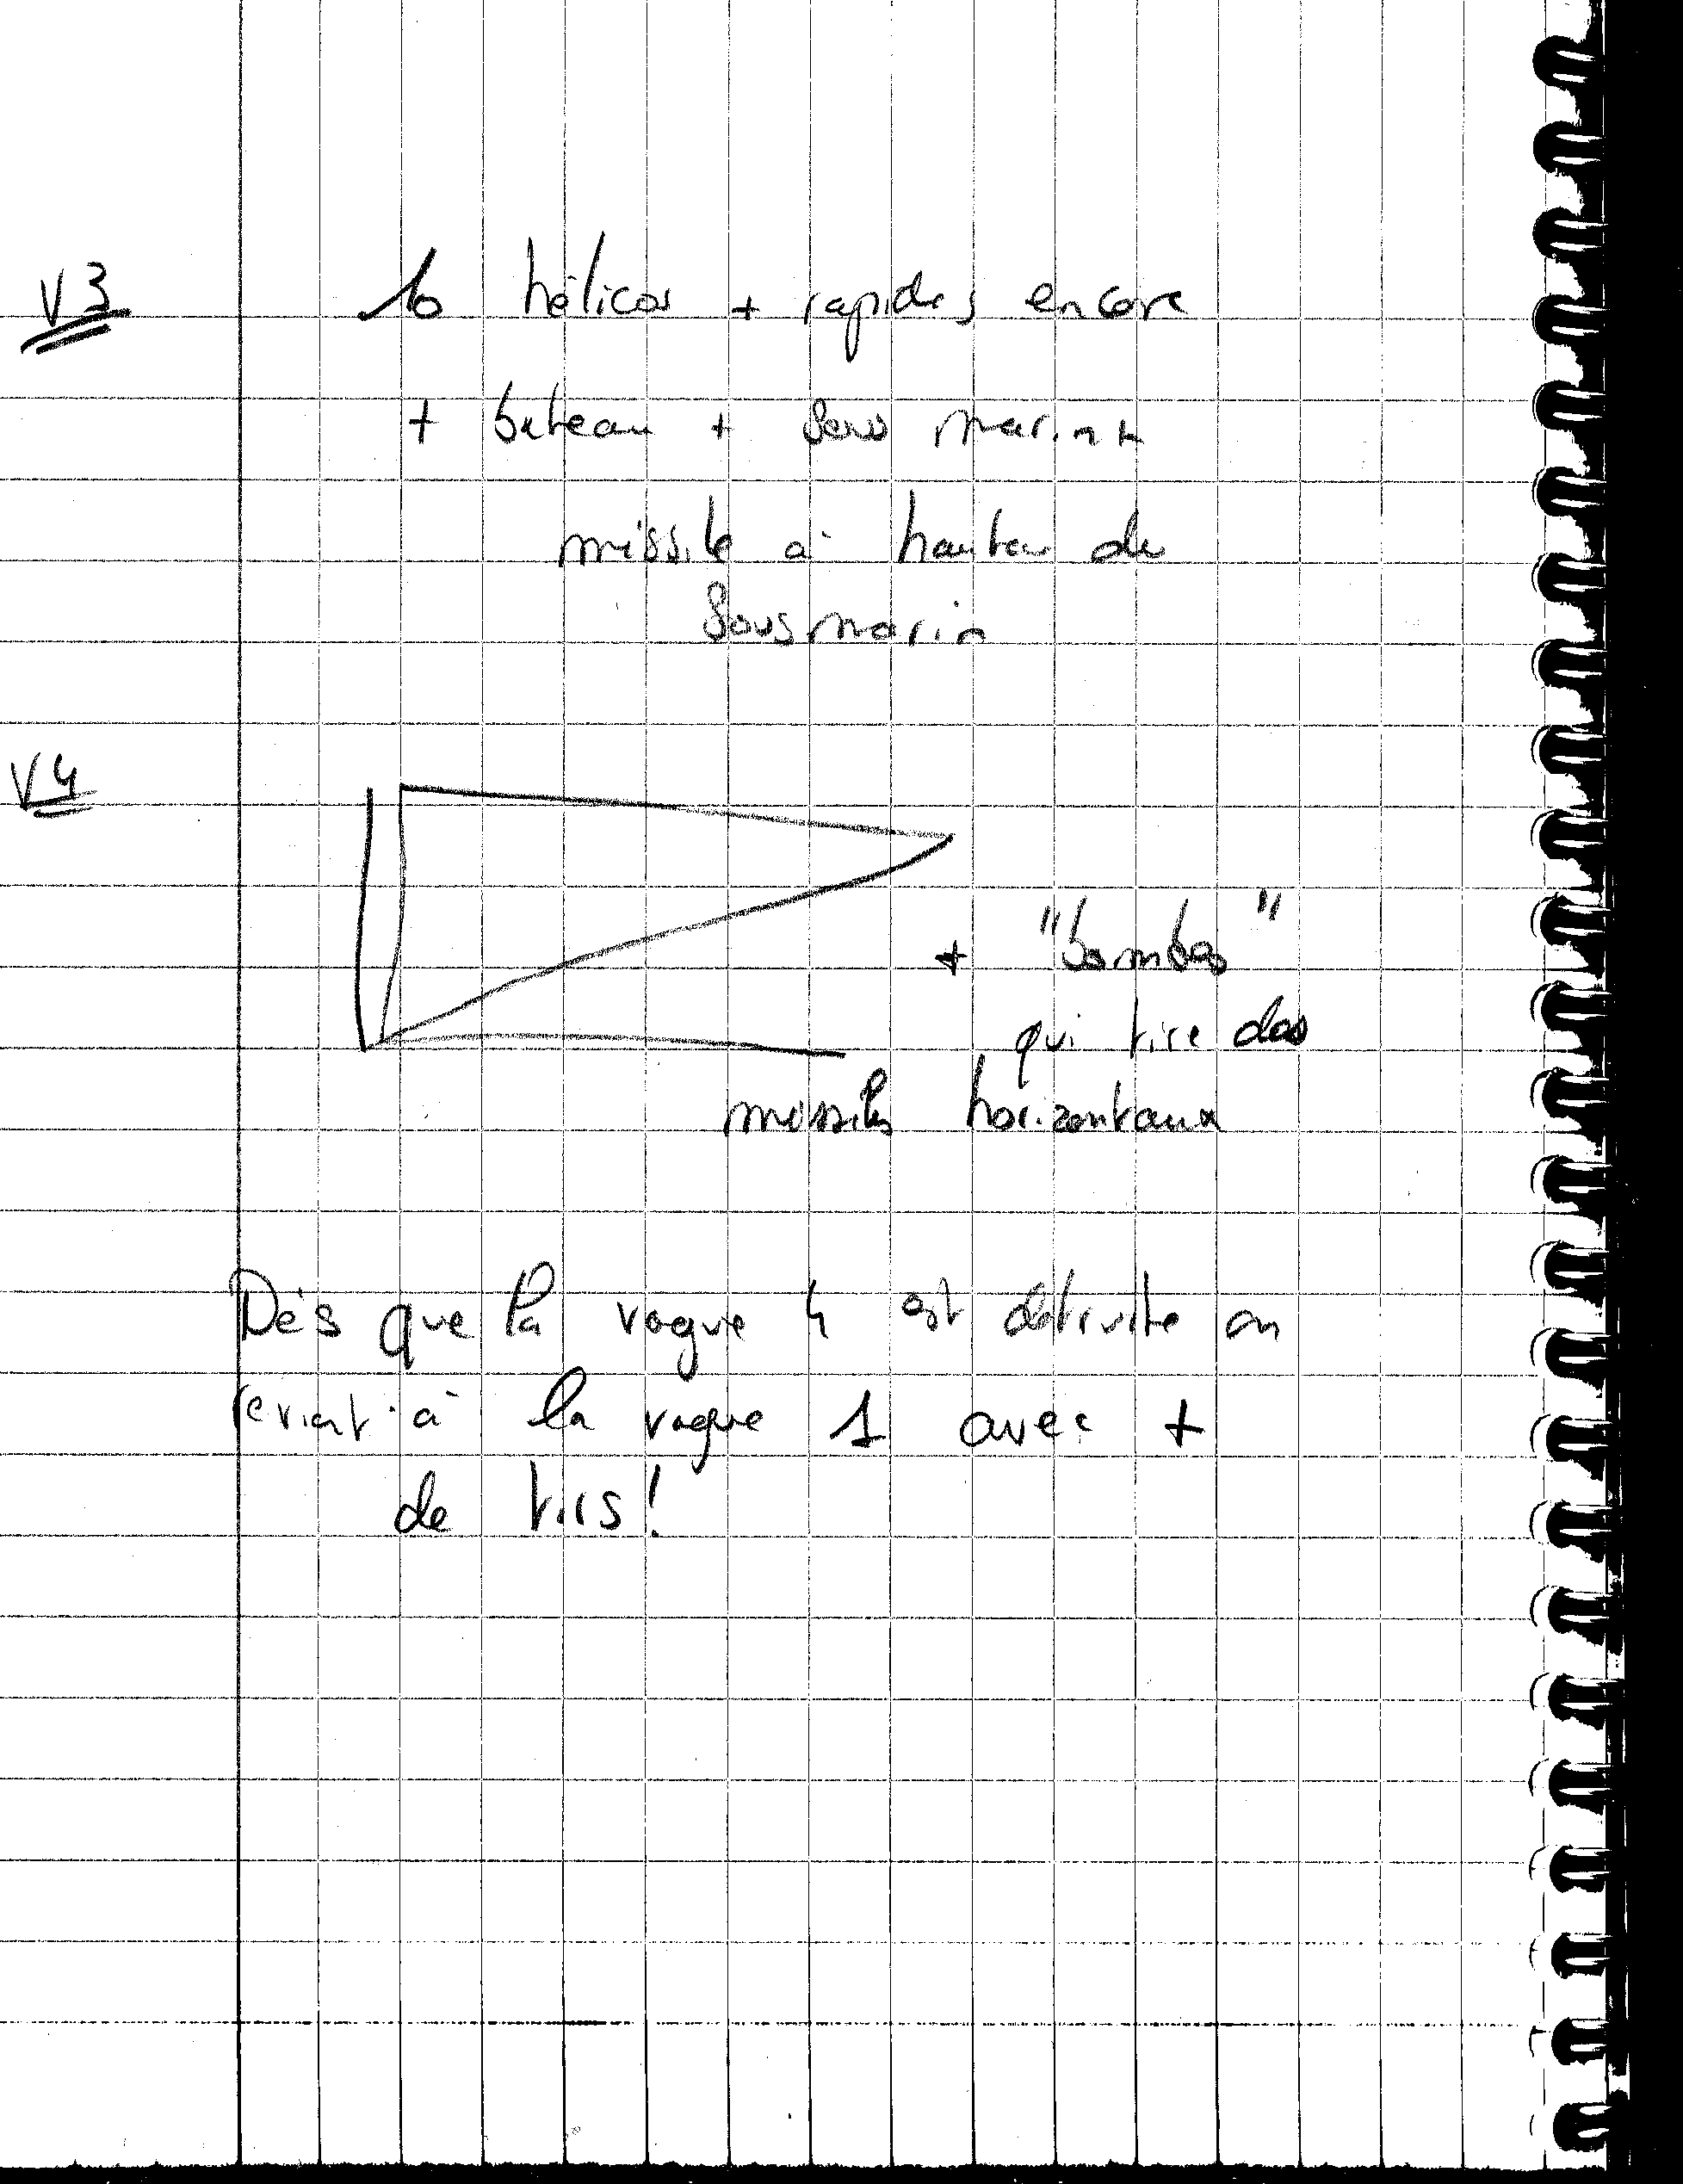 V3 10 hélicos + rapides encore
+ bateau + sous marin
missile à hauteur de
sousmarin
V4
+ "bombes"
qui tire des
missiles horizontaux
Dès que la vague 4 est detruite on
revient à la vague 1 avec +
de tirs!